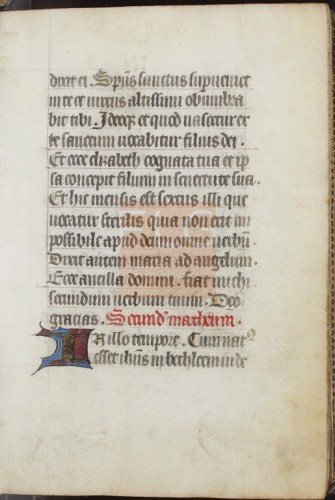 dixit ei. Sp̄us sanctus supueniet
in te et uirtus altissimi obumbra
bit tibi. Ideoqꝫ et quod nascetur ex
te sanctum uocabitur filius dei.
Et ecce elizabeth cognata tua et ip
sa concepit filium in senectute sua.
Et hic mensis est sextus illi que
uocatur sterilis quia non erit im
possibile apud deum omne uerbū.
Dixit autem maria ad angelum.
Ecce ancilla domini. fiat michi
secundum uerbum tuum. Deo
gracias. Secund matheum.
In illo tempore. Cum nat᷒
esset ih̄us in bethleem iude